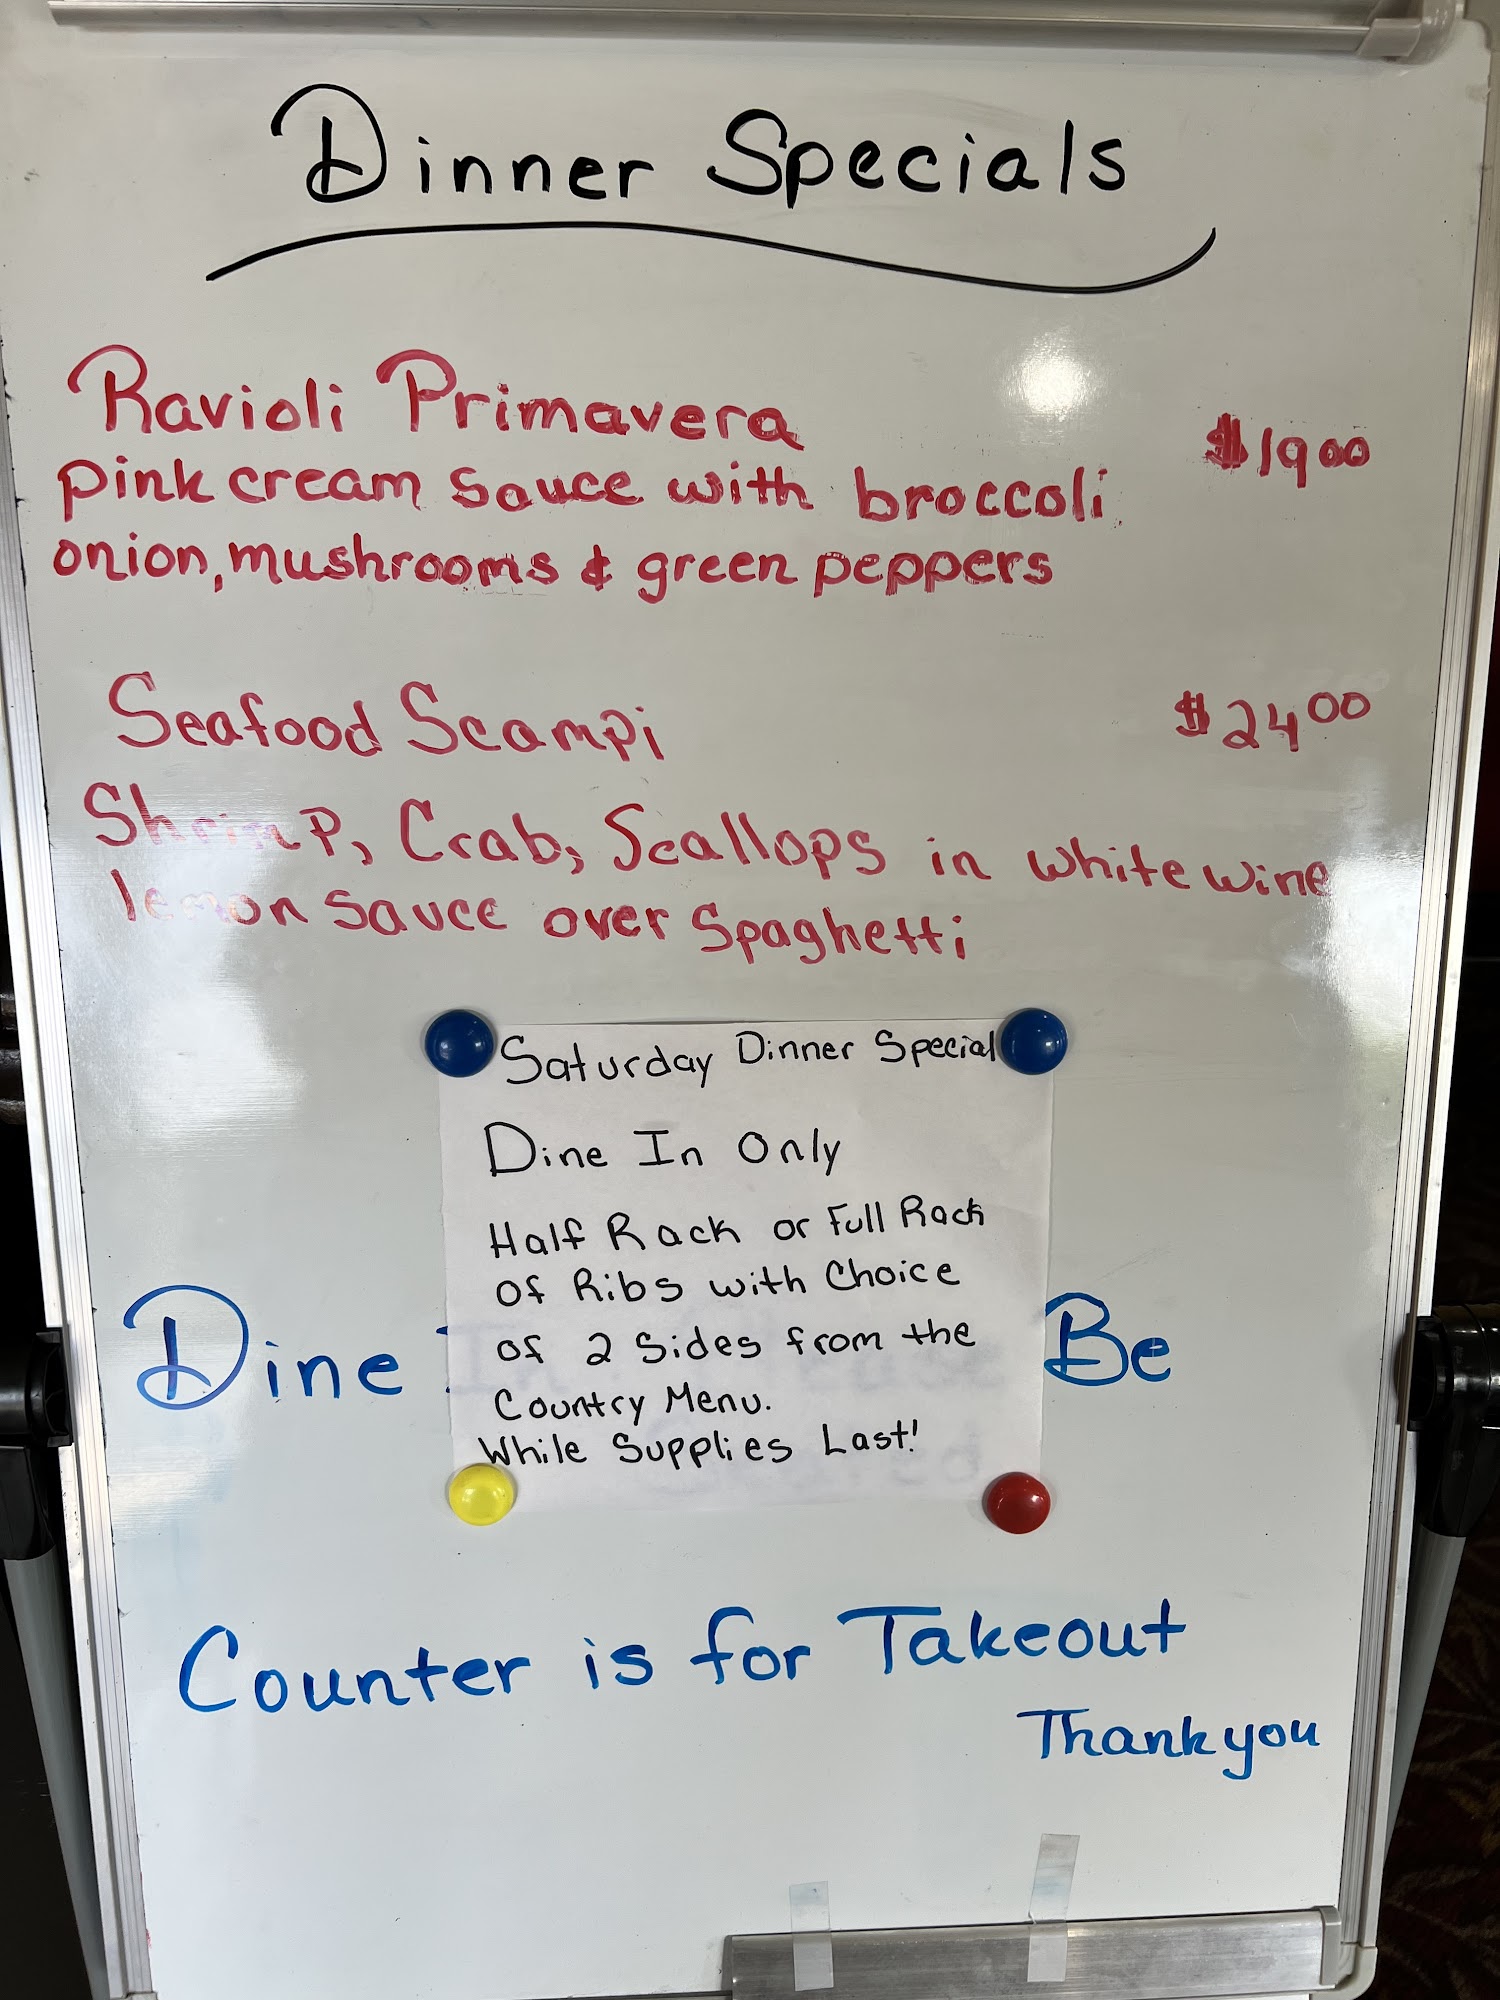 Dinner Specials
Ravioli Primavera
$19 00
pink cream sauce with broccoli
onion, mushrooms & green peppers
Seafood Scampi
$24 00
Shrimp, Crab, Scallops in white wine
lemon sauce over Spaghetti
Saturday Dinner Special
Dine In Only
Half Rack or Full Rack
of Ribs with Choice
of 2 Sides from the
Country Menu.
While Supplies Last!
Dine
Be
Counter is for Takeout
Thank you